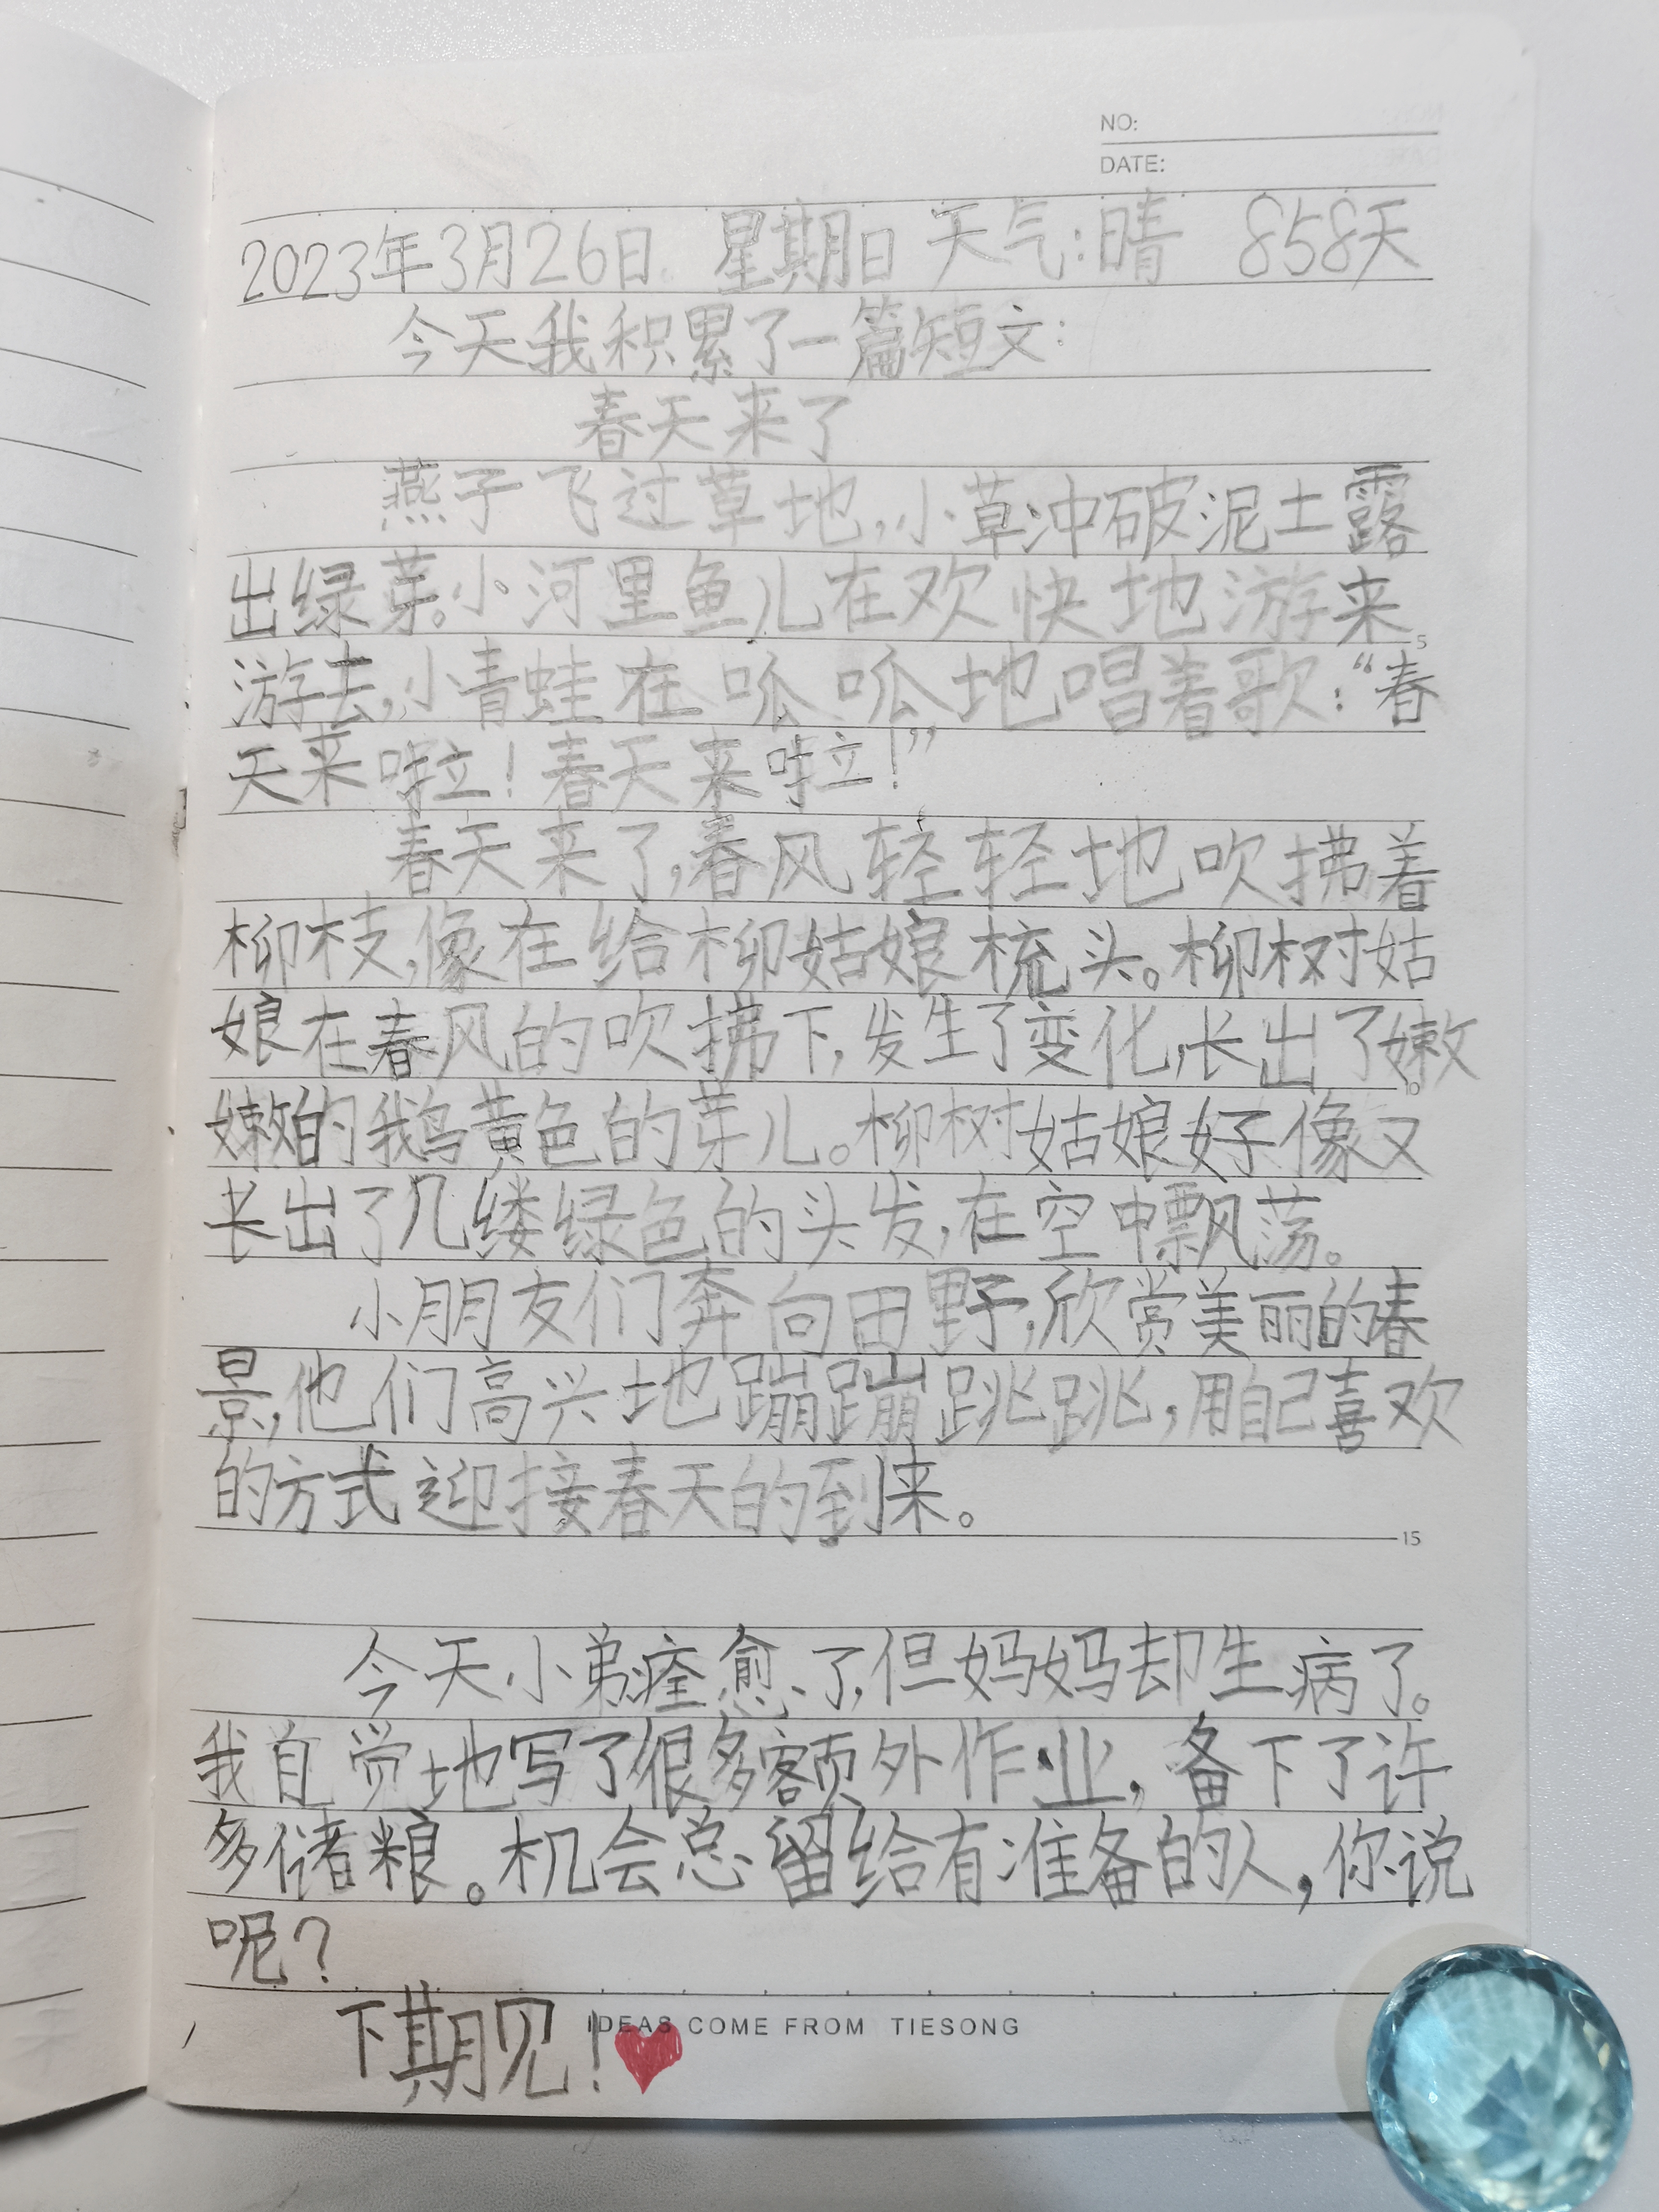 NO:
DATE:
2023年3月26日 星期日 天气:晴 858天
今天我积累了一篇短文:
春天来了
燕子飞过草地,小草冲破泥土露
出绿芽。小河里鱼儿在欢快地游来
5
游去,小青蛙在呱呱地唱着歌:“春
天来啦!春天来啦!”
春天来了,春风轻轻地吹拂着
柳枝,像在给柳姑娘梳头。柳树姑
娘在春风的吹拂下,发生了变化,长出了嫩
嫩的鹅黄色的芽儿。柳树姑娘好像又
长出了几缕绿色的头发,在空中飘荡。
小朋友们奔向田野,欣赏美丽的春
景,他们高兴地蹦蹦跳跳,用自己喜欢
的方式迎接春天的到来。
15
今天小弟痊愈了,但妈妈却生病了。
我自觉地写了很多额外作业,备下了许
多储粮。机会总留给有准备的人,你说
呢?
下期见!
IDEAS COME FROM TIESONG